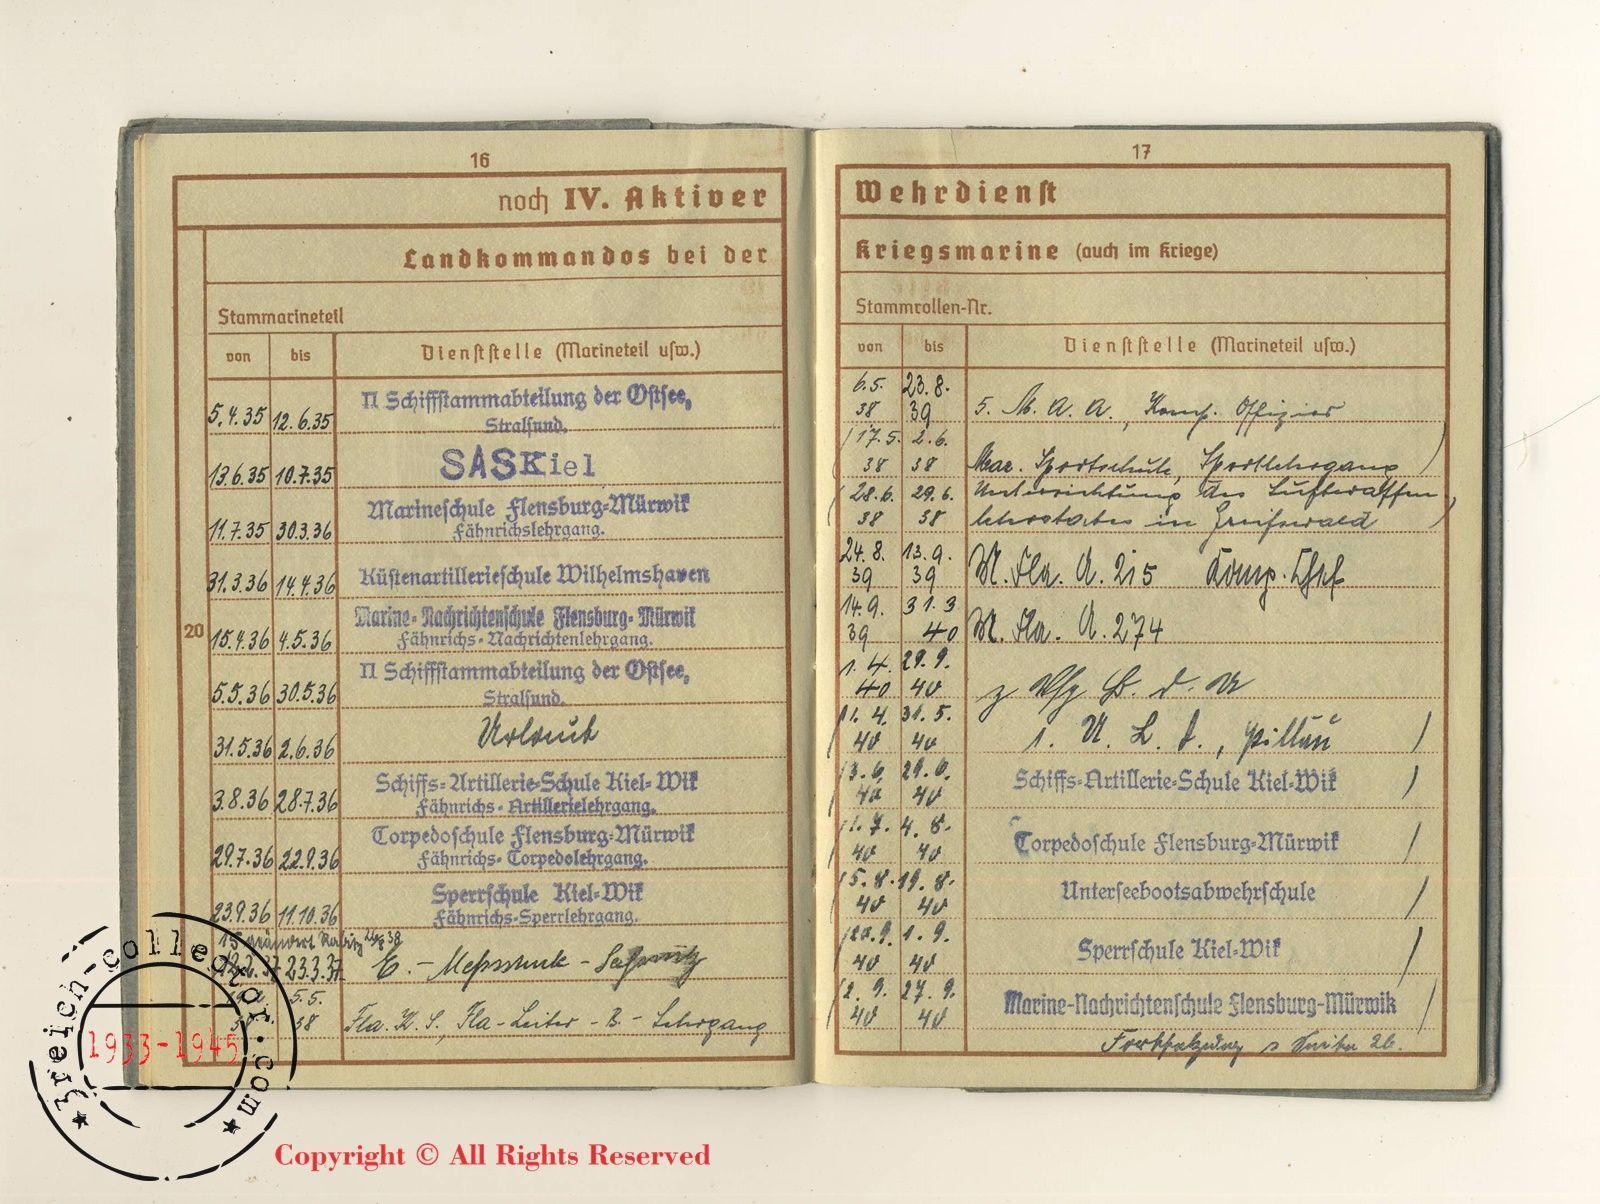 16
noch IV. Aktiver
Landkommandos bei der
Stammarineteil
von bis Dienststelle (Marineteil usw.)
5.4.35 12.6.35 II Schiffstammabteilung der Ostsee,
Stralsund.
13.6.35 10.7.35 SASKiel
11.7.35 30.3.36 Marineschule Flensburg-Mürwik
Fähnrichslehrgang.
31.3.36 14.4.36 Küstenartillerieschule Wilhelmshaven
20
15.4.36 4.5.36 Marine-Nachrichtenschule Flensburg-Mürwik
Fähnrichs-Nachrichtenlehrgang.
5.5.36 30.5.36 II Schiffstammabteilung der Ostsee,
Stralsund.
31.5.36 2.6.36 Urlaub
3.8.36 28.7.36 Schiffs-Artillerie-Schule Kiel-Wik
Fähnrichs-Artillerielehrgang.
29.7.36 22.9.36 Torpedoschule Flensburg-Mürwik
Fähnrichs-Torpedolehrgang.
23.9.36 11.10.36 Sperrschule Kiel-Wik
Fähnrichs-Sperrlehrgang.
15. geändert
23.3.37 E.-Messschule-Saßnitz
5.5.
38 Fla. K. S., Fla-Leiter-B-Lehrgang
17
Wehrdienst
Kriegsmarine (auch im Kriege)
Stammrollen-Nr.
von bis Dienststelle (Marineteil usw.)
6.5. 23.8.
38 39 5. M. A. A., Komp. Offizier
(17.5. 2.6.
38 38 Mar. Sportschule, Sportlehrgang )
(28.6. 29.6. Unterrichtung des Luftwaffen
38 38 lehrstabes in Greifswald )
24.8. 13.9.
39 39 M. Fla. A. 215 Komp. Chef
14.9. 31.3
39 40 M. Fla. A. 274
1.4. 29.9.
40 40 z Vfg B. d. U
(1.4. 31.5.
40 40 1. U. L. D., Pillau )
(3.6. 29.6.
40 40 Schiffs-Artillerie-Schule Kiel-Wik )
(1.7. 4.8.
40 40 Torpedoschule Flensburg-Mürwik )
(5.8. 19.8.
40 40 Unterseebootsabwehrschule )
(20.9. 1.9.
40 40 Sperrschule Kiel-Wik )
(2.9. 27.9.
40 40 Marine-Nachrichtenschule Flensburg-Mürwik )
Fortsetzung s Seite 26.
3reich-collector.com
1933-1945
Copyright © All Rights Reserved